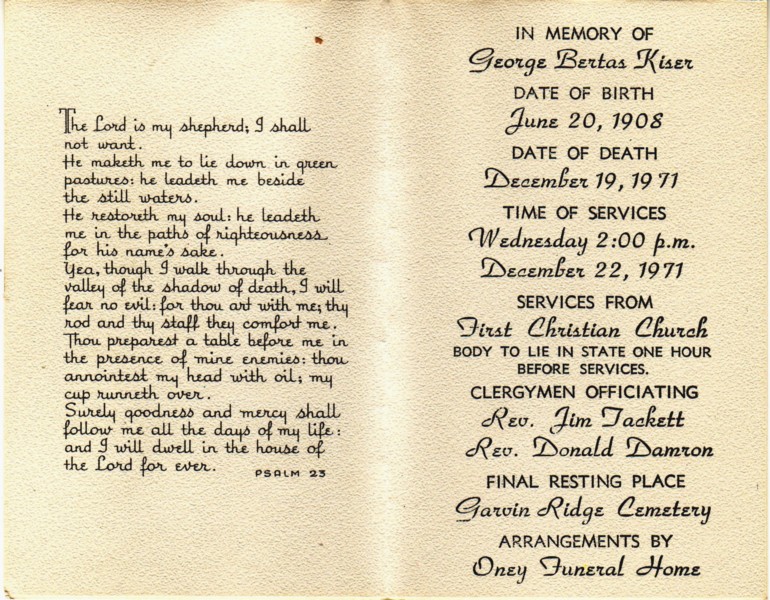 The Lord is my shepherd; I shall
not want.
He maketh me to lie down in green
pastures: he leadeth me beside
the still waters.
He restoreth my soul: he leadeth
me in the paths of righteousness
for his name's sake.
Yea, though I walk through the
valley of the shadow of death, I will
fear no evil: for thou art with me; thy
rod and thy staff they comfort me.
Thou preparest a table before me in
the presence of mine enemies: thou
annointest my head with oil; my
cup runneth over.
Surely goodness and mercy shall
follow me all the days of my life:
and I will dwell in the house of
the Lord for ever.
PSALM 23
IN MEMORY OF
George Bertas Kiser
DATE OF BIRTH
June 20, 1908
DATE OF DEATH
December 19, 1971
TIME OF SERVICES
Wednesday 2:00 p.m.
December 22, 1971
SERVICES FROM
First Christian Church
BODY TO LIE IN STATE ONE HOUR
BEFORE SERVICES.
CLERGYMEN OFFICIATING
Rev. Jim Tackett
Rev. Donald Damron
FINAL RESTING PLACE
Garvin Ridge Cemetery
ARRANGEMENTS BY
Oney Funeral Home